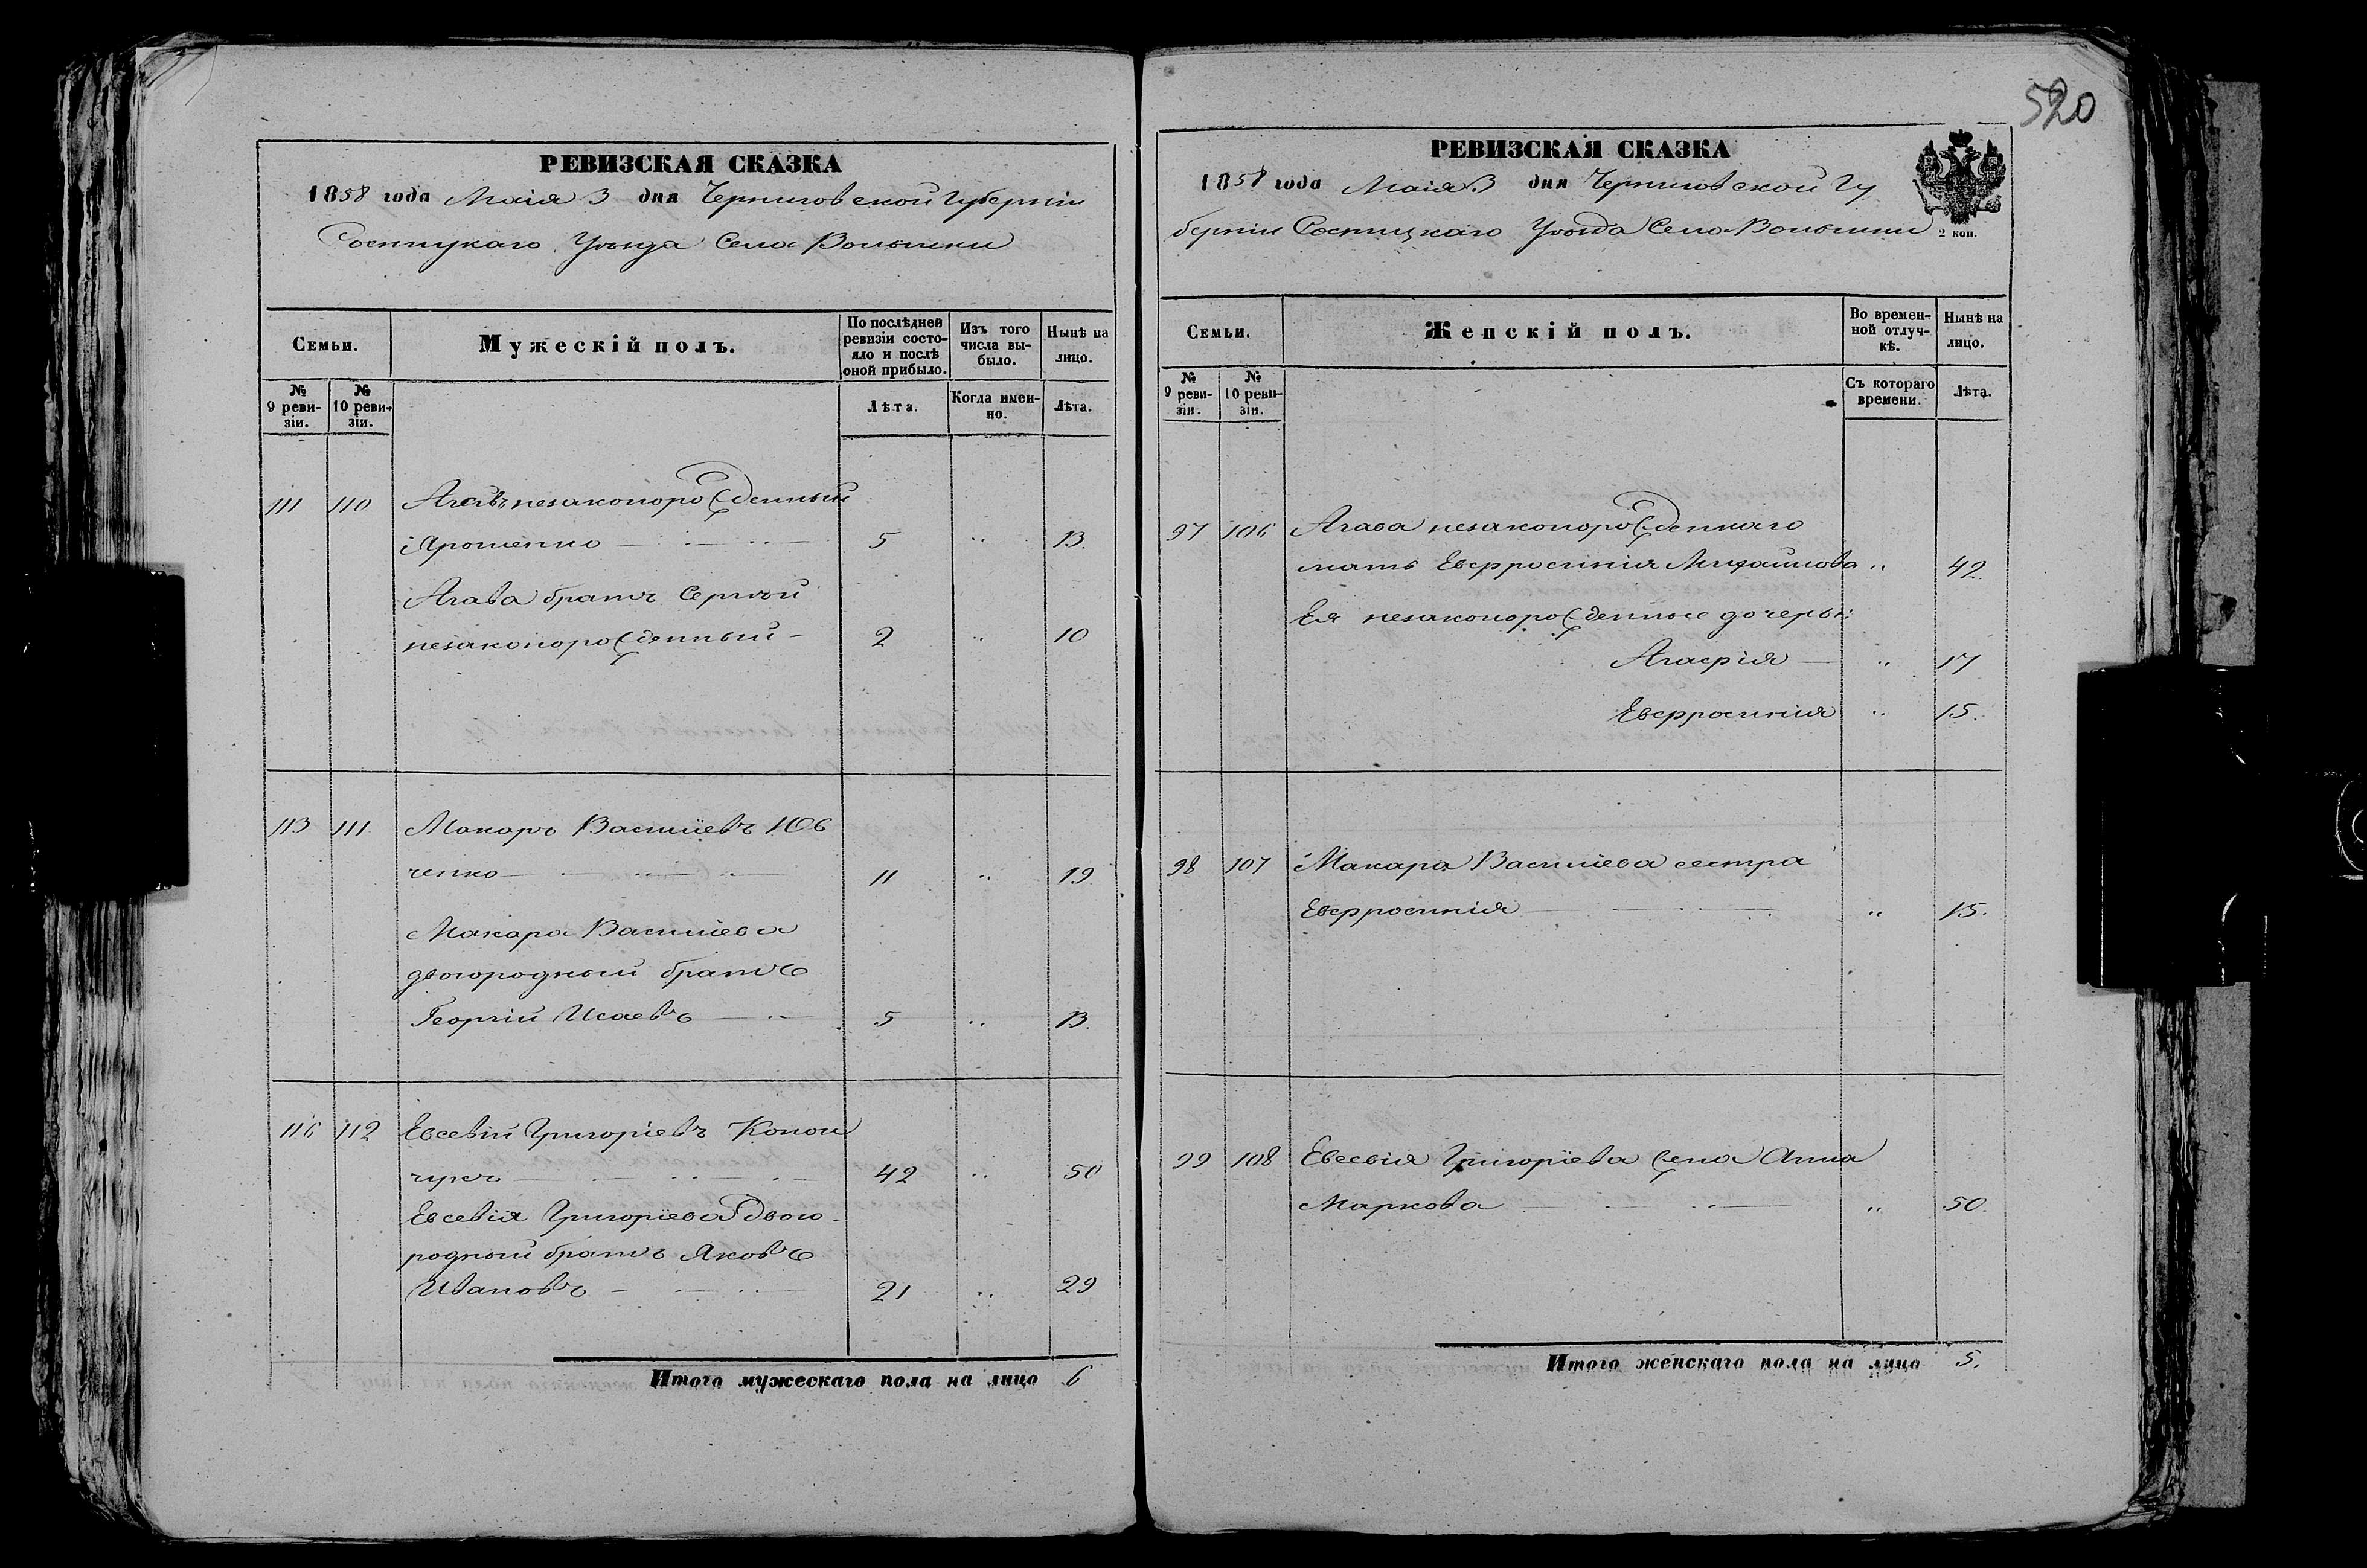 520
РЕВИЗСКАЯ СКАЗКА
1858 года Маія 3 дня Черниговской Губерніи
Сосницкаго Уѣзда Села Волынки
Семьи.
Мужескій полъ.
По послѣдней ревизіи состо-
яло и послѣ оной прибыло.
Изъ того числа вы-
было.
Нынѣ на лицо.
№ 9 реви-
зіи.
№ 10 реви-
зіи.
Лѣта.
Когда имен-
но.
Лѣта.
111 110 незаконорожденный
Ярошенко 5 „ 13.
братъ Сергѣй
незаконорожденный 2 „ 10
113 111. Макаръ Василіевъ Юв
ченко 11 „ 19
Макара Василіева
двоюродный братъ
Георгій Исаевъ 5 „ 13.
116 112 Евсевій Григоріевъ
42 „ 50
Евсевія Григоріева двою-
родный братъ Яковъ
Ивановъ 21 „ 29
Итого мужескаго пола на лицо 6
РЕВИЗСКАЯ СКАЗКА
1858 года Маія 3 дня Черниговской Гу
берніи Сосницкаго Уѣзда Села Волынки
2 коп.
Семьи.
Женскій полъ.
Во времен-
ной отлуч-
кѣ.
Нынѣ на лицо.
№ 9 реви-
зіи.
№ 10 реви-
зіи.
Съ котораго времени.
Лѣта.
97 106 незаконорожденнаго
мать Евфросинія Михаилова „ 42.
Ея незаконорожденные дочери:
Агафія „ 17
Евфросинія „ 15.
98 107 Макара Василіева сестра
Евфросинія „ 15.
99 108 Евсевія Григоріева жена Анна
Маркова „ 50.
Итого женскаго пола на лицо 5.